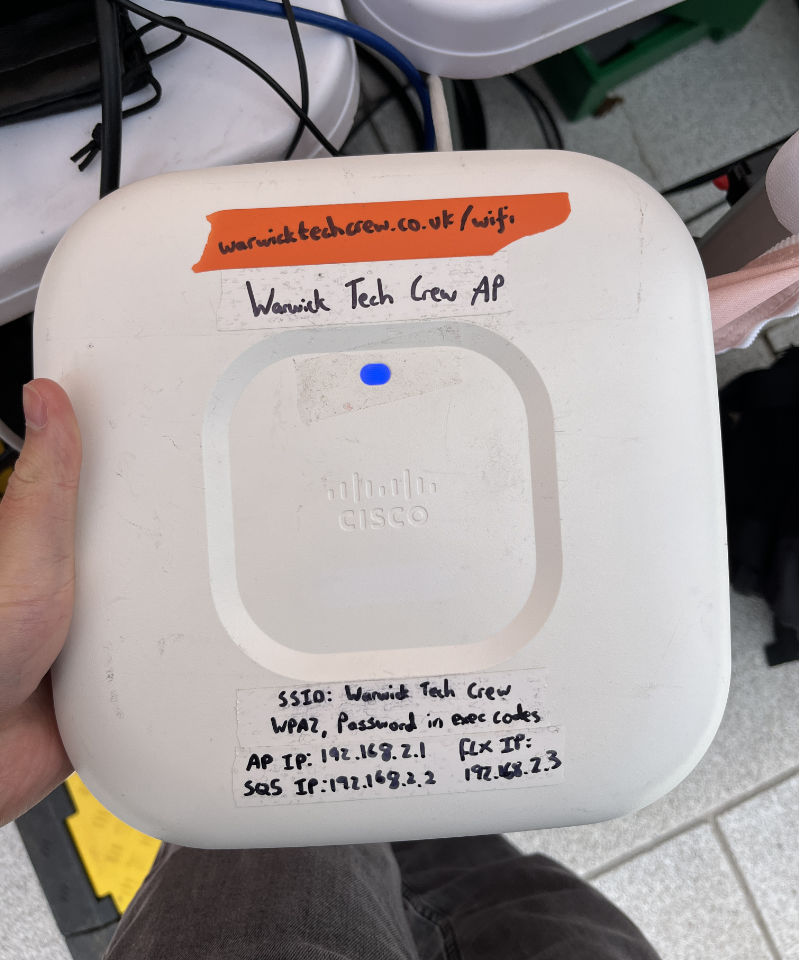 warwicktechcrew.co.uk/wifi
Warwick Tech Crew AP
CISCO
SSID: Warwick Tech Crew
WPA2, Password in exec codes
AP IP: 192.168.2.1
SQ5 IP: 192.168.2.2
FLX IP:
192.168.2.3